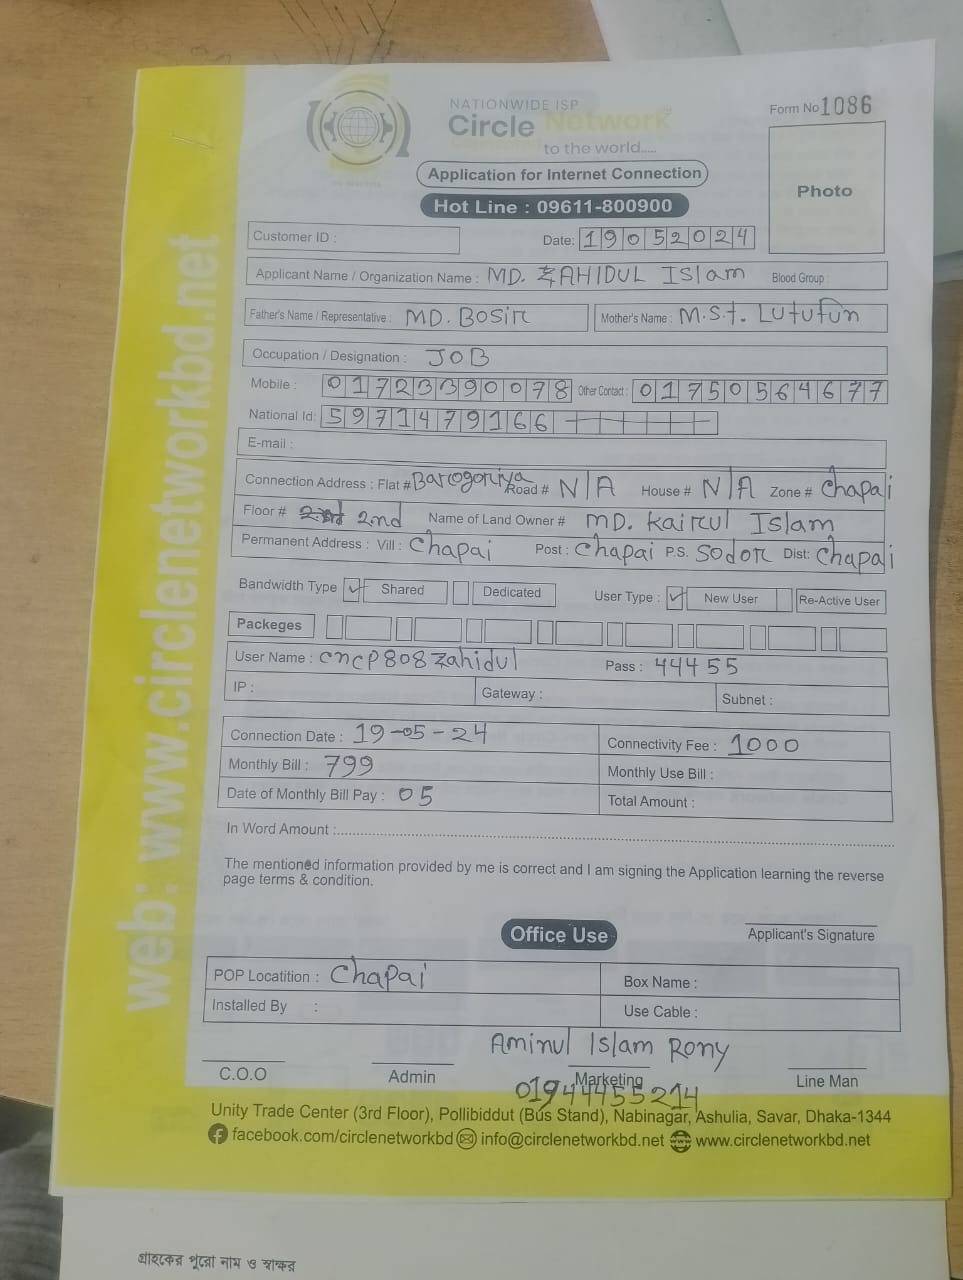 NATIONWIDE ISP
Circle Network
to the world.....
Form No 1086
Application for Internet Connection
Photo
Hot Line : 09611-800900
Customer ID :
Date: 19052024
Applicant Name / Organization Name : MD. ZAHIDUL ISlam Blood Group :
Father's Name / Representative : MD. BOSIR Mother's Name : M.S.t. Lutufun
Occupation / Designation : JOB
Mobile : 01723390078 Other Contact : 01750564677
National Id: 5971479166
E-mail :
Connection Address : Flat # Barogoriya Road # N/A House # N/A Zone # Chapai
Floor # 2nd Name of Land Owner # MD. Kairul Islam
Permanent Address : Vill : Chapai Post : Chapai P.S. Sodor Dist: Chapai
Bandwidth Type ✓ Shared Dedicated User Type : ✓ New User Re-Active User
Packeges
User Name : cncp808zahidul Pass : 44455
IP : Gateway : Subnet :
Connection Date : 19-05-24 Connectivity Fee : 1000
Monthly Bill : 799 Monthly Use Bill :
Date of Monthly Bill Pay : 05 Total Amount :
In Word Amount :
The mentioned information provided by me is correct and I am signing the Application learning the reverse
page terms & condition.
Office Use
Applicant's Signature
POP Locatition : Chapai Box Name :
Installed By : Use Cable :
Aminul Islam Rony
C.O.O Admin Marketing Line Man
01944455214
Unity Trade Center (3rd Floor), Pollibiddut (Bus Stand), Nabinagar, Ashulia, Savar, Dhaka-1344
facebook.com/circlenetworkbd info@circlenetworkbd.net www.circlenetworkbd.net
web: www.circlenetworkbd.net
গ্রাহকের পুরো নাম ও স্বাক্ষর